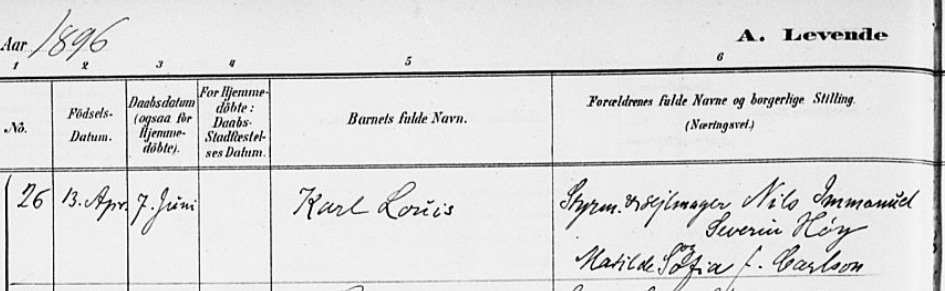 Aar 1896
A. Levende
1 2 3 4 5 6
No.
Födsels-
Datum.
Daabsdatum
(ogsaa for
Hjemme-
döbte).
For Hjemme-
döbte:
Daabs-
Stadfæstel-
ses Datum.
Barnets fulde Navn.
Forældrenes fulde Navne og borgerlige Stilling.
(Næringsvei.)
26 13. Apr. 7. Juni Karl Louis Styrm. & Sejlmager Nils Immanuel
Severin Höy
og
Matilde Sofia f. Carlson